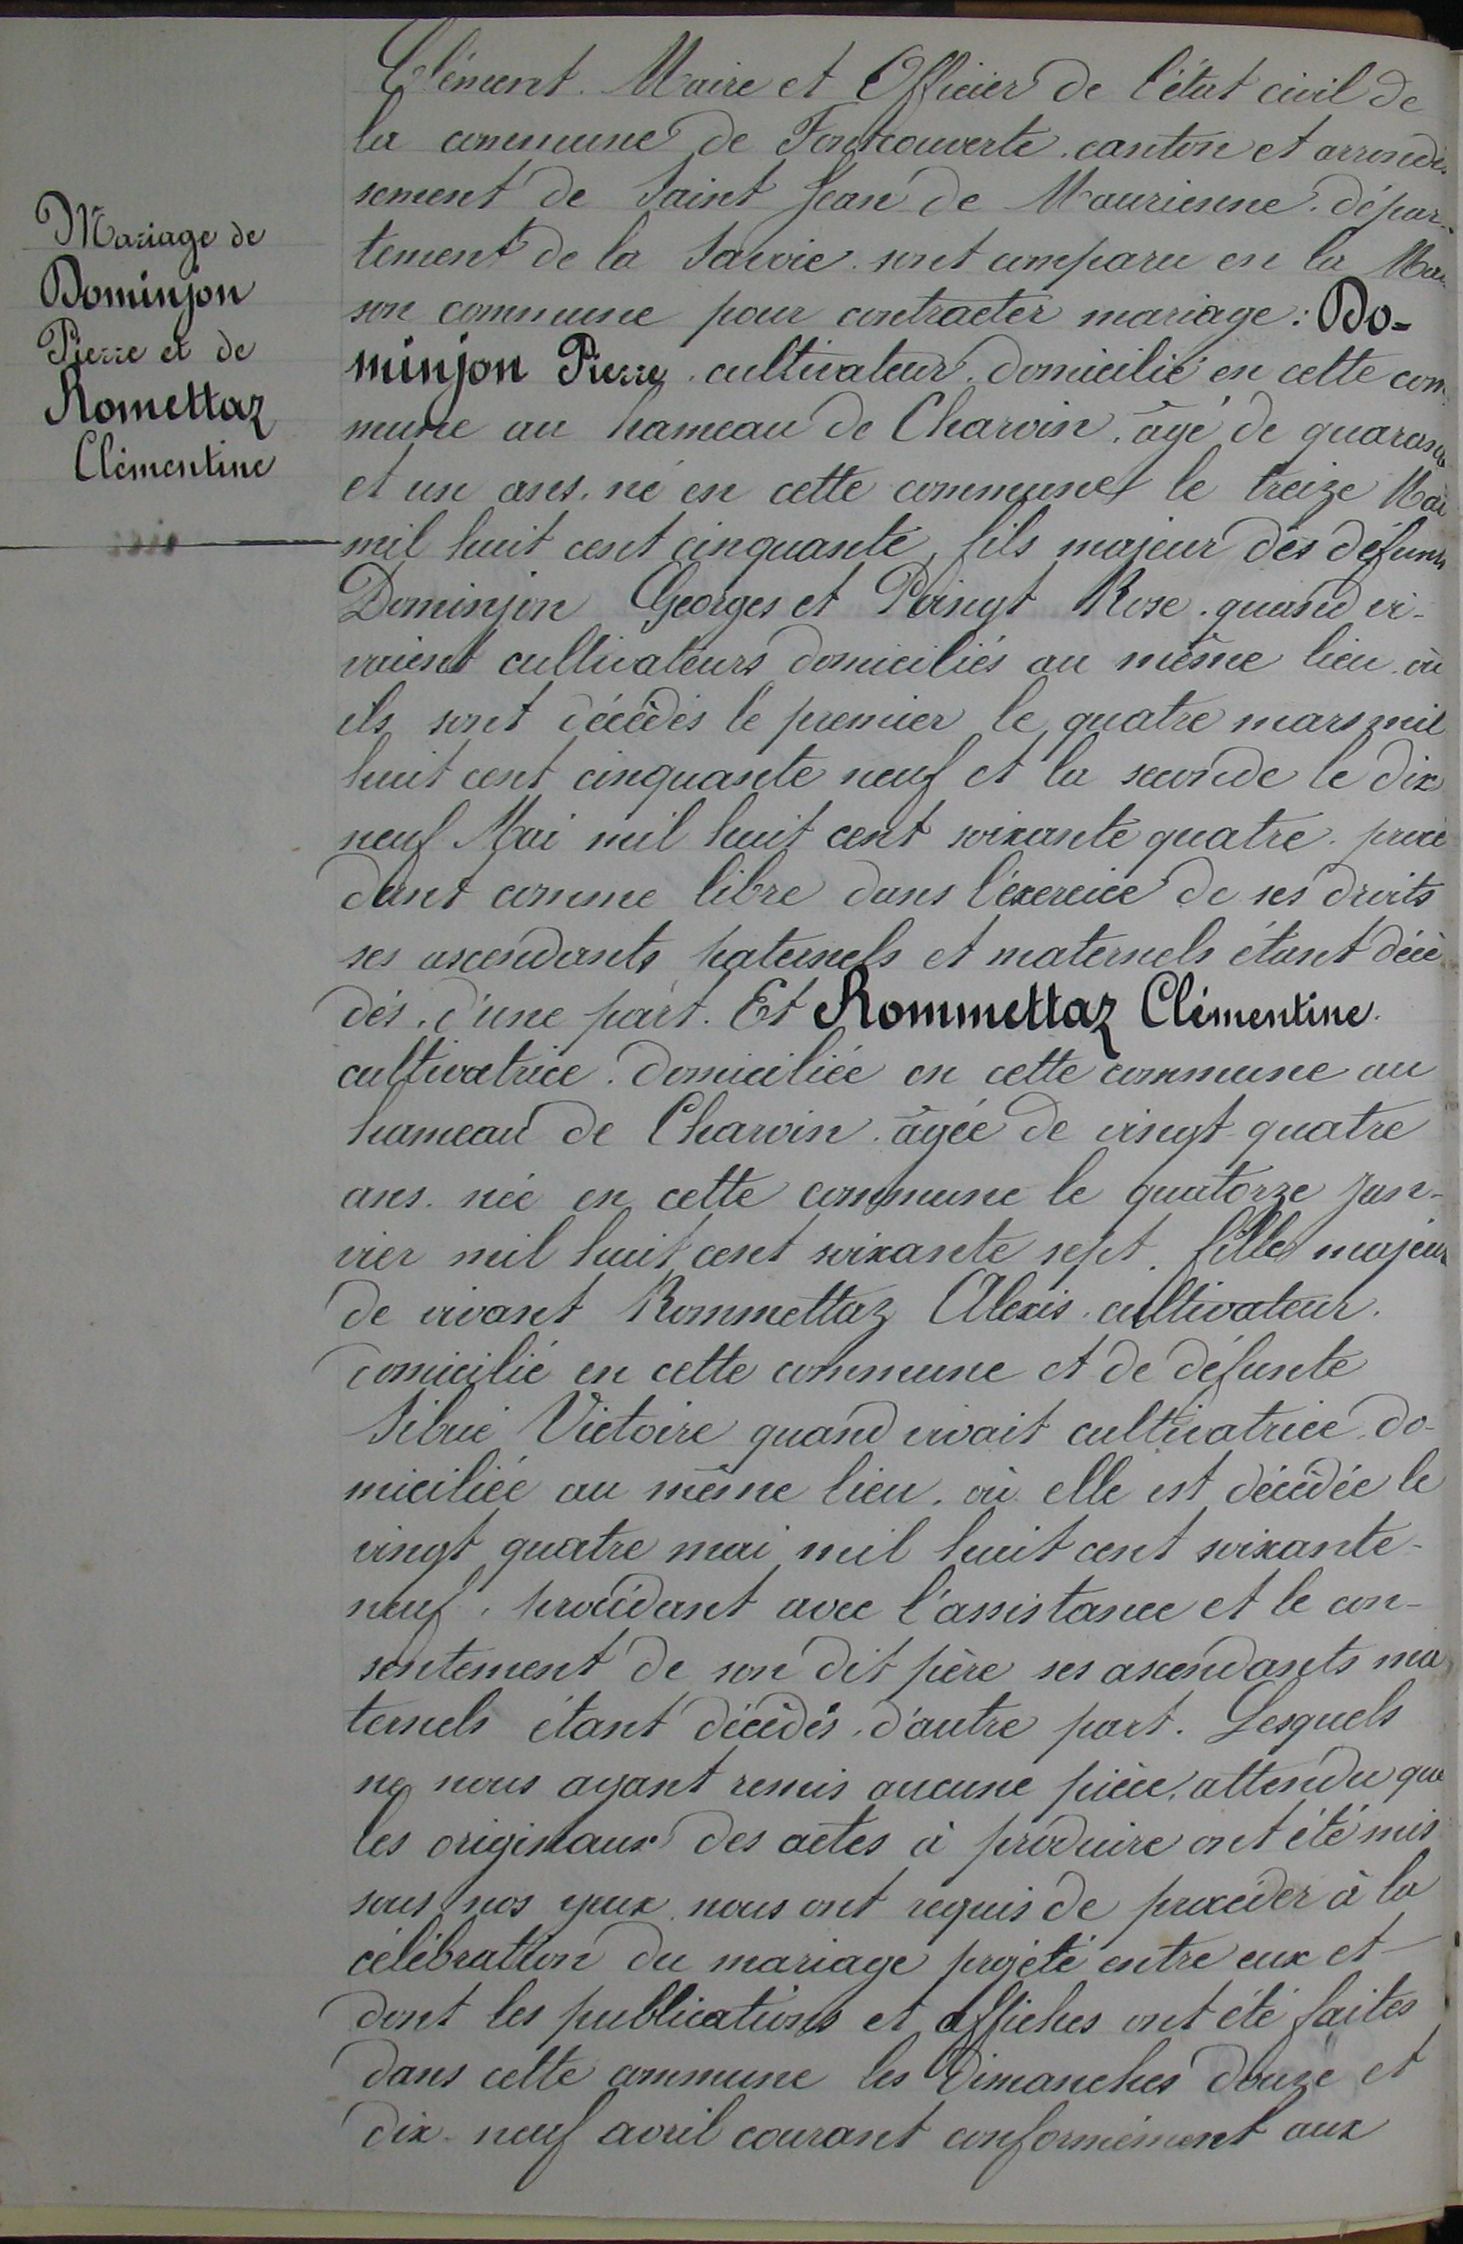 Mariage de
Dominjon
Pierre et de
Romettaz
Clémentine
Clément. Maire et Officier de l'état civil de
la commune de Fontcouverte. canton et arrondis
sement de Saint Jean de Maurienne. dépar-
tement de la Savoie. sont comparu en la Mai
son commune pour contracter mariage: Do=
minjon Pierre, cultivateur. domicilié en cette com
mune au hameau de Charvin. âgé de quarante
et un ans. né en cette commune le treize Mai
mil huit cent cinquante, fils majeur des défunts
Dominjon Georges et Poingt Rose. quand vi-
vaient cultivateurs domiciliés au même lieu. où
ils sont décédés le premier le quatre mars mil
huit cent cinquante neuf et la seconde le dix
neuf Mai mil huit cent soixante quatre. procé
dant comme libre dans l'exercice de ses droits
ses ascendants paternels et maternels étant décé
dés. d'une part. Et Rommettaz Clémentine.
cultivatrice. domiciliée en cette commune au
hameau de Charvin. âgée de vingt-quatre
ans. née en cette commune le quatorze Jan-
vier mil huit cent soixante sept. fille majeur
de vivant Rommettaz Alexis. cultivateur.
domicilié en cette commune et de défunte
Sibué Victoire quand vivait cultivatrice. do-
miciliée au même lieu. où elle est décédée le
vingt quatre mai mil huit cent soixante-
neuf. procédant avec l'assistance et le con-
sentement de son dit père ses ascendants ma
ternels étant décédés. d'autre part. Lesquels
ne nous ayant remis aucune pièce. attendu que
les originaux des actes à produire ont été mis
sous nos yeux nous ont requis de procéder à la
célébration du mariage projeté entre eux et
dont les publications et affiches ont été faites
dans cette commune les Dimanches douze et
dix-neuf avril courant conformément aux